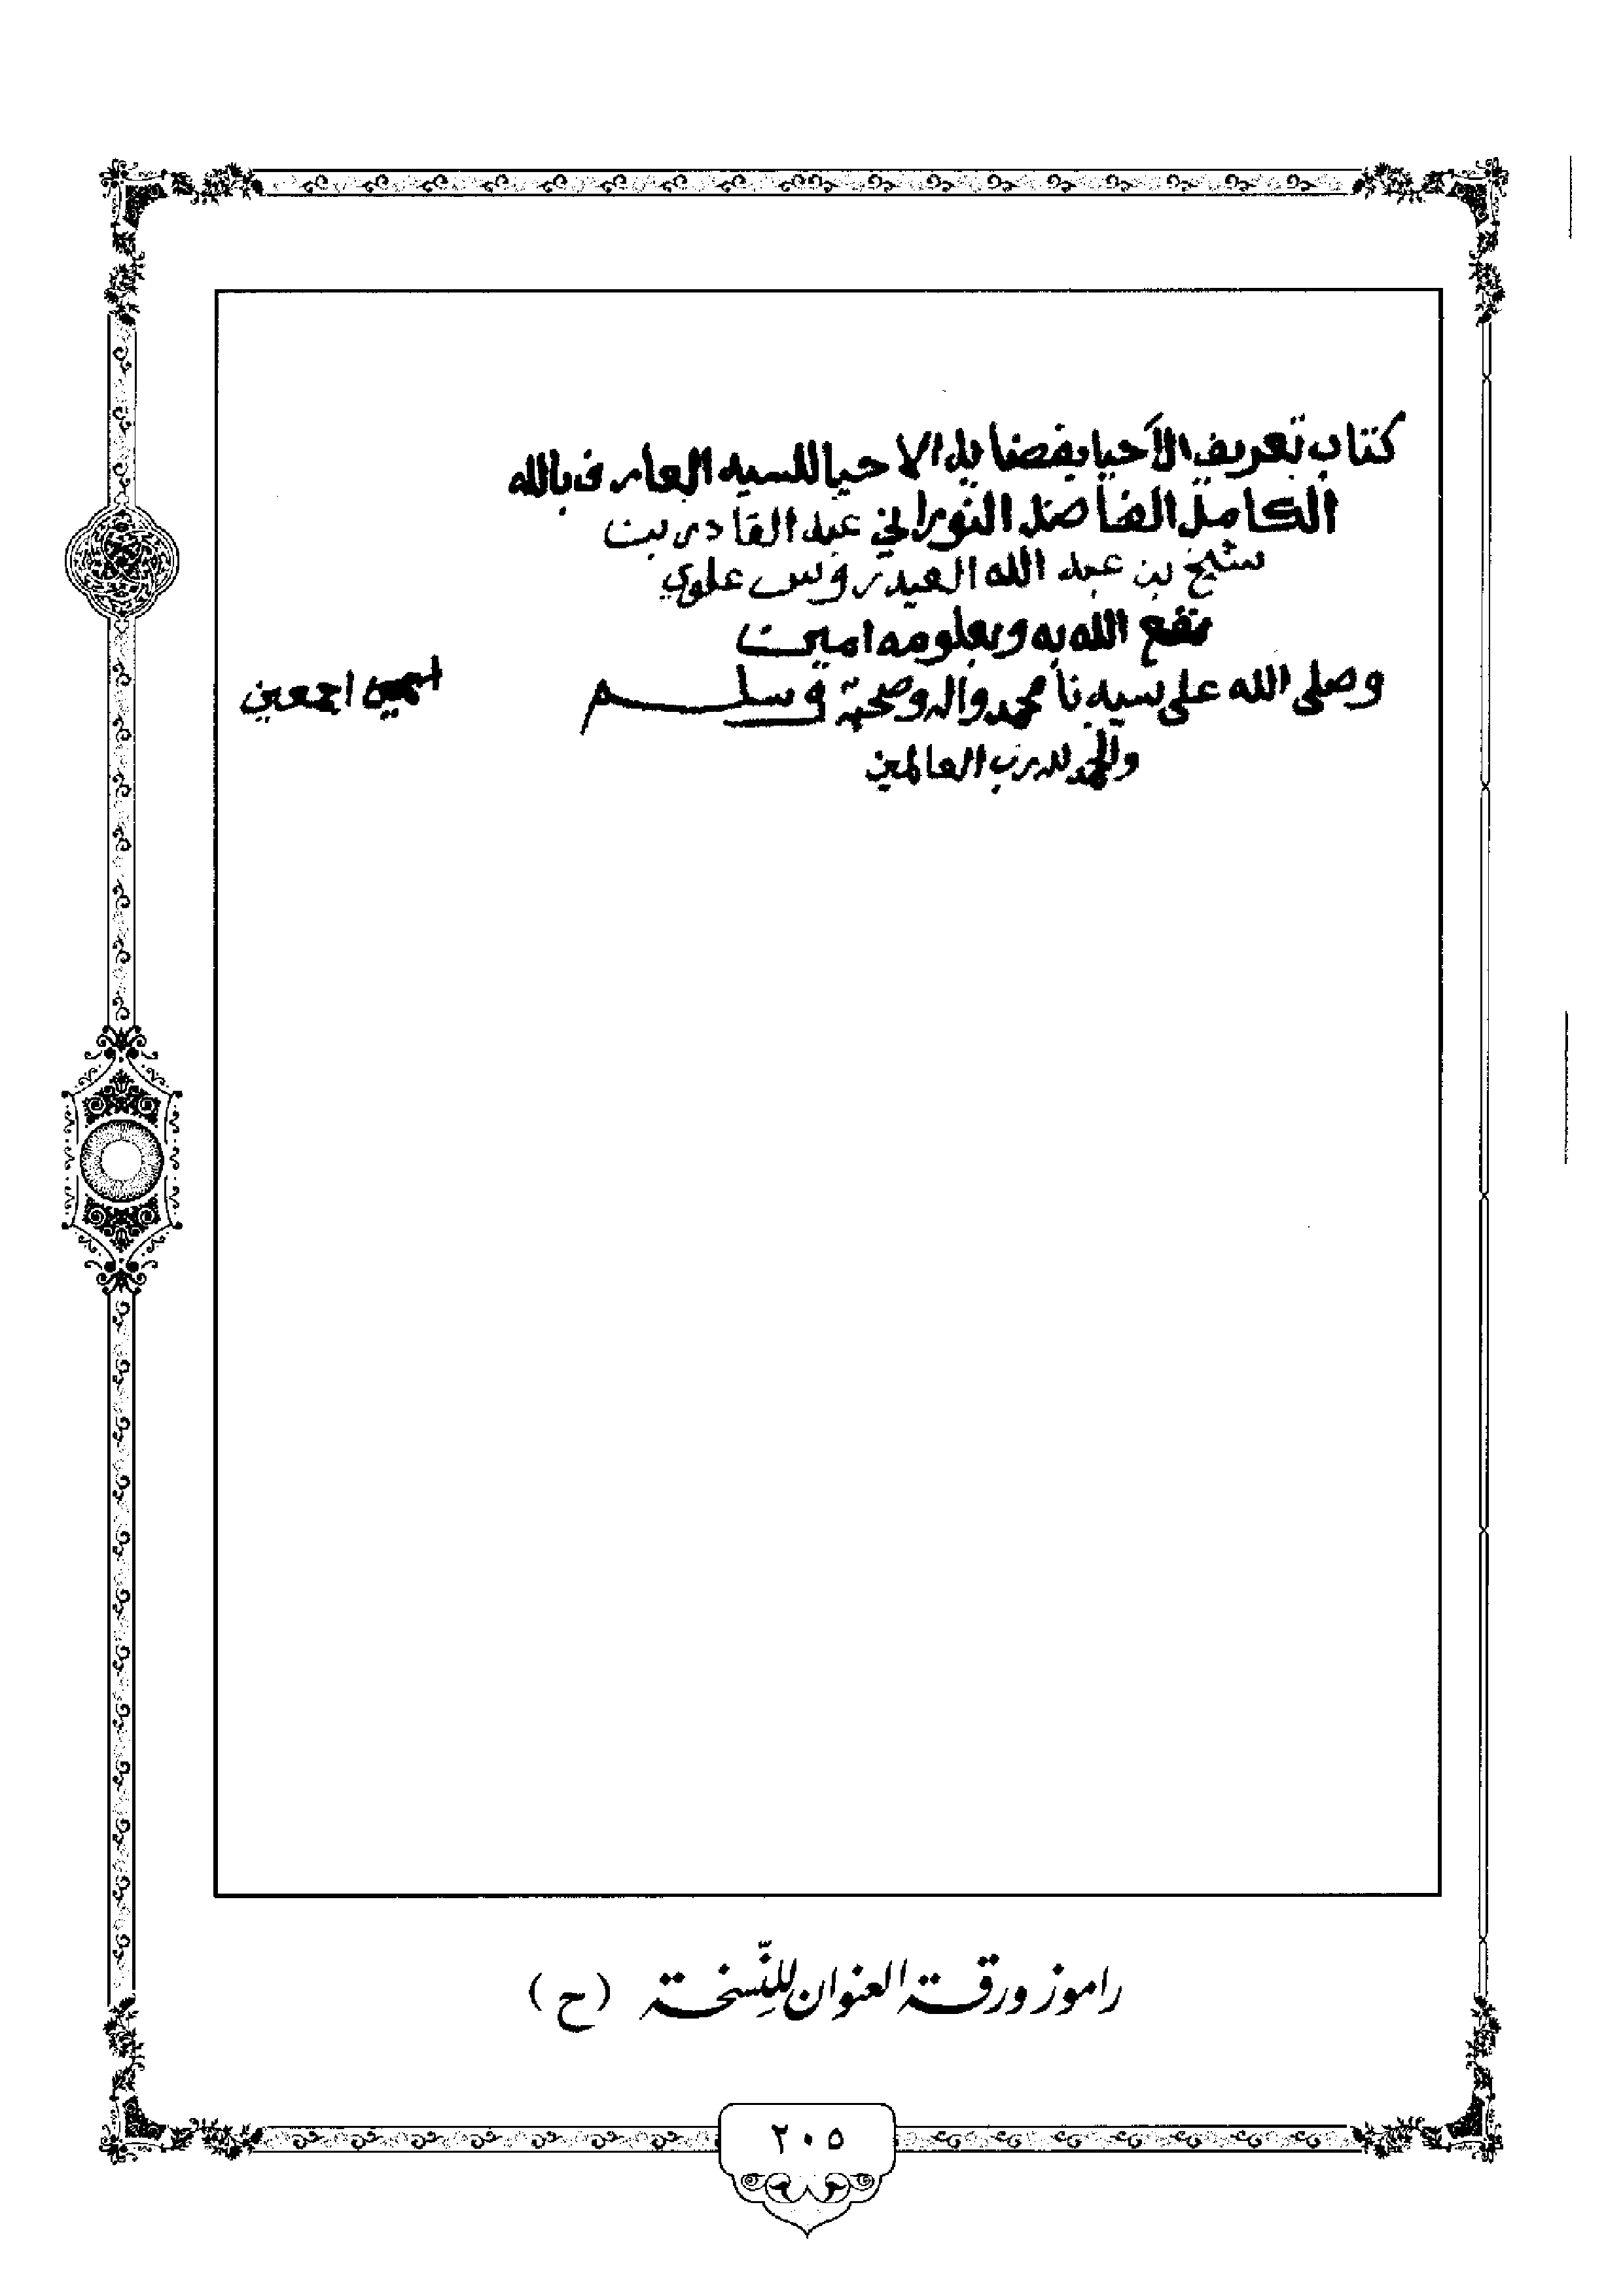 كتاب تعريف الأحيا بفضايل الاحيا للسيد العارف بالله
الكامل الفاضل النوراني عبد القادر بن
شيخ بن عبد الله العيدروس علوي
نفع الله به وبعلومه امين
وصلى الله على سيدنا محمد واله وصحبه وسلم اجمعين
والحمد لله رب العالمين
راموز ورقة العنوان للنِّسخة (ح)
٢٠٥